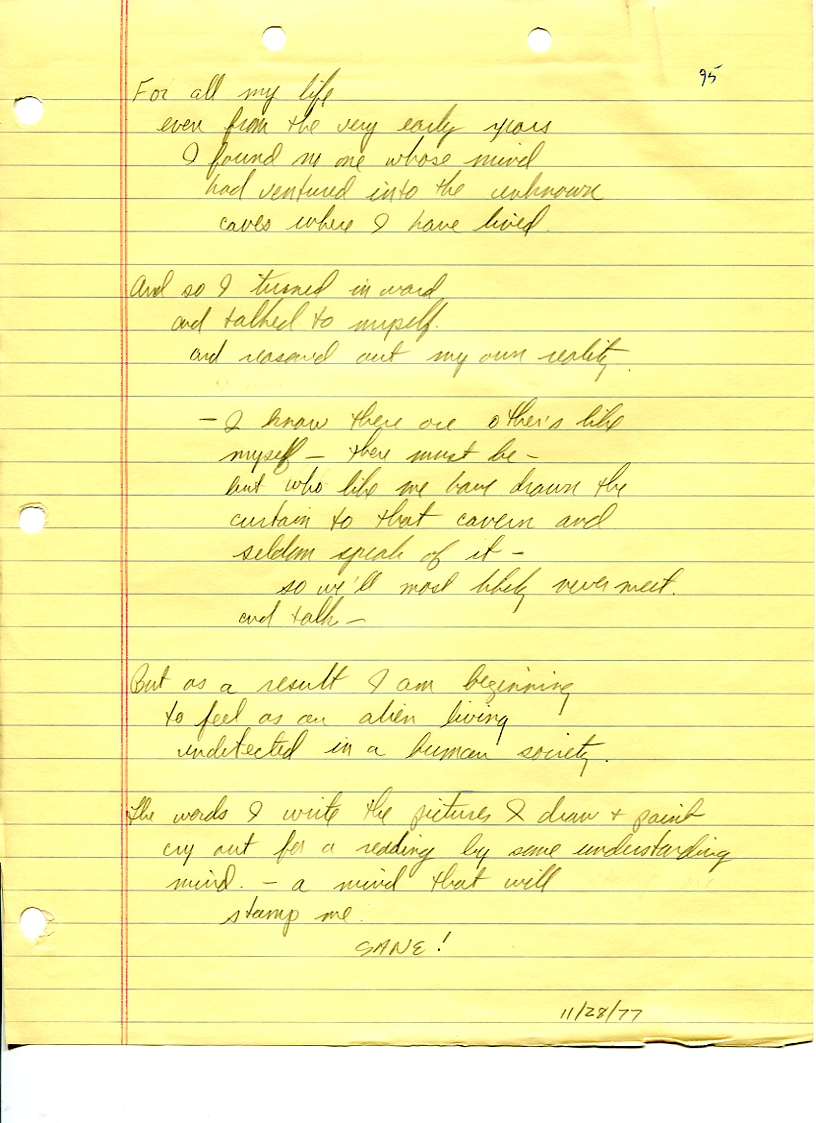 95
For all my life
even from the very early years
I found no one whose mind
had ventured into the unknown
caves where I have lived.
And so I turned in ward
and talked to myself.
and reasoned out my own reality.
- I know there are other's like
myself - there must be -
but who like me have drawn the
curtain to that cavern and
seldom speak of it -
so we'll most likely never meet.
and talk -
But as a result I am beginning
to feel as an alien living
undetected in a human society.
The words I write the pictures I draw + paint
cry out for a reading by some understanding
mind. - a mind that will
stamp me.
SANE!
11/28/77